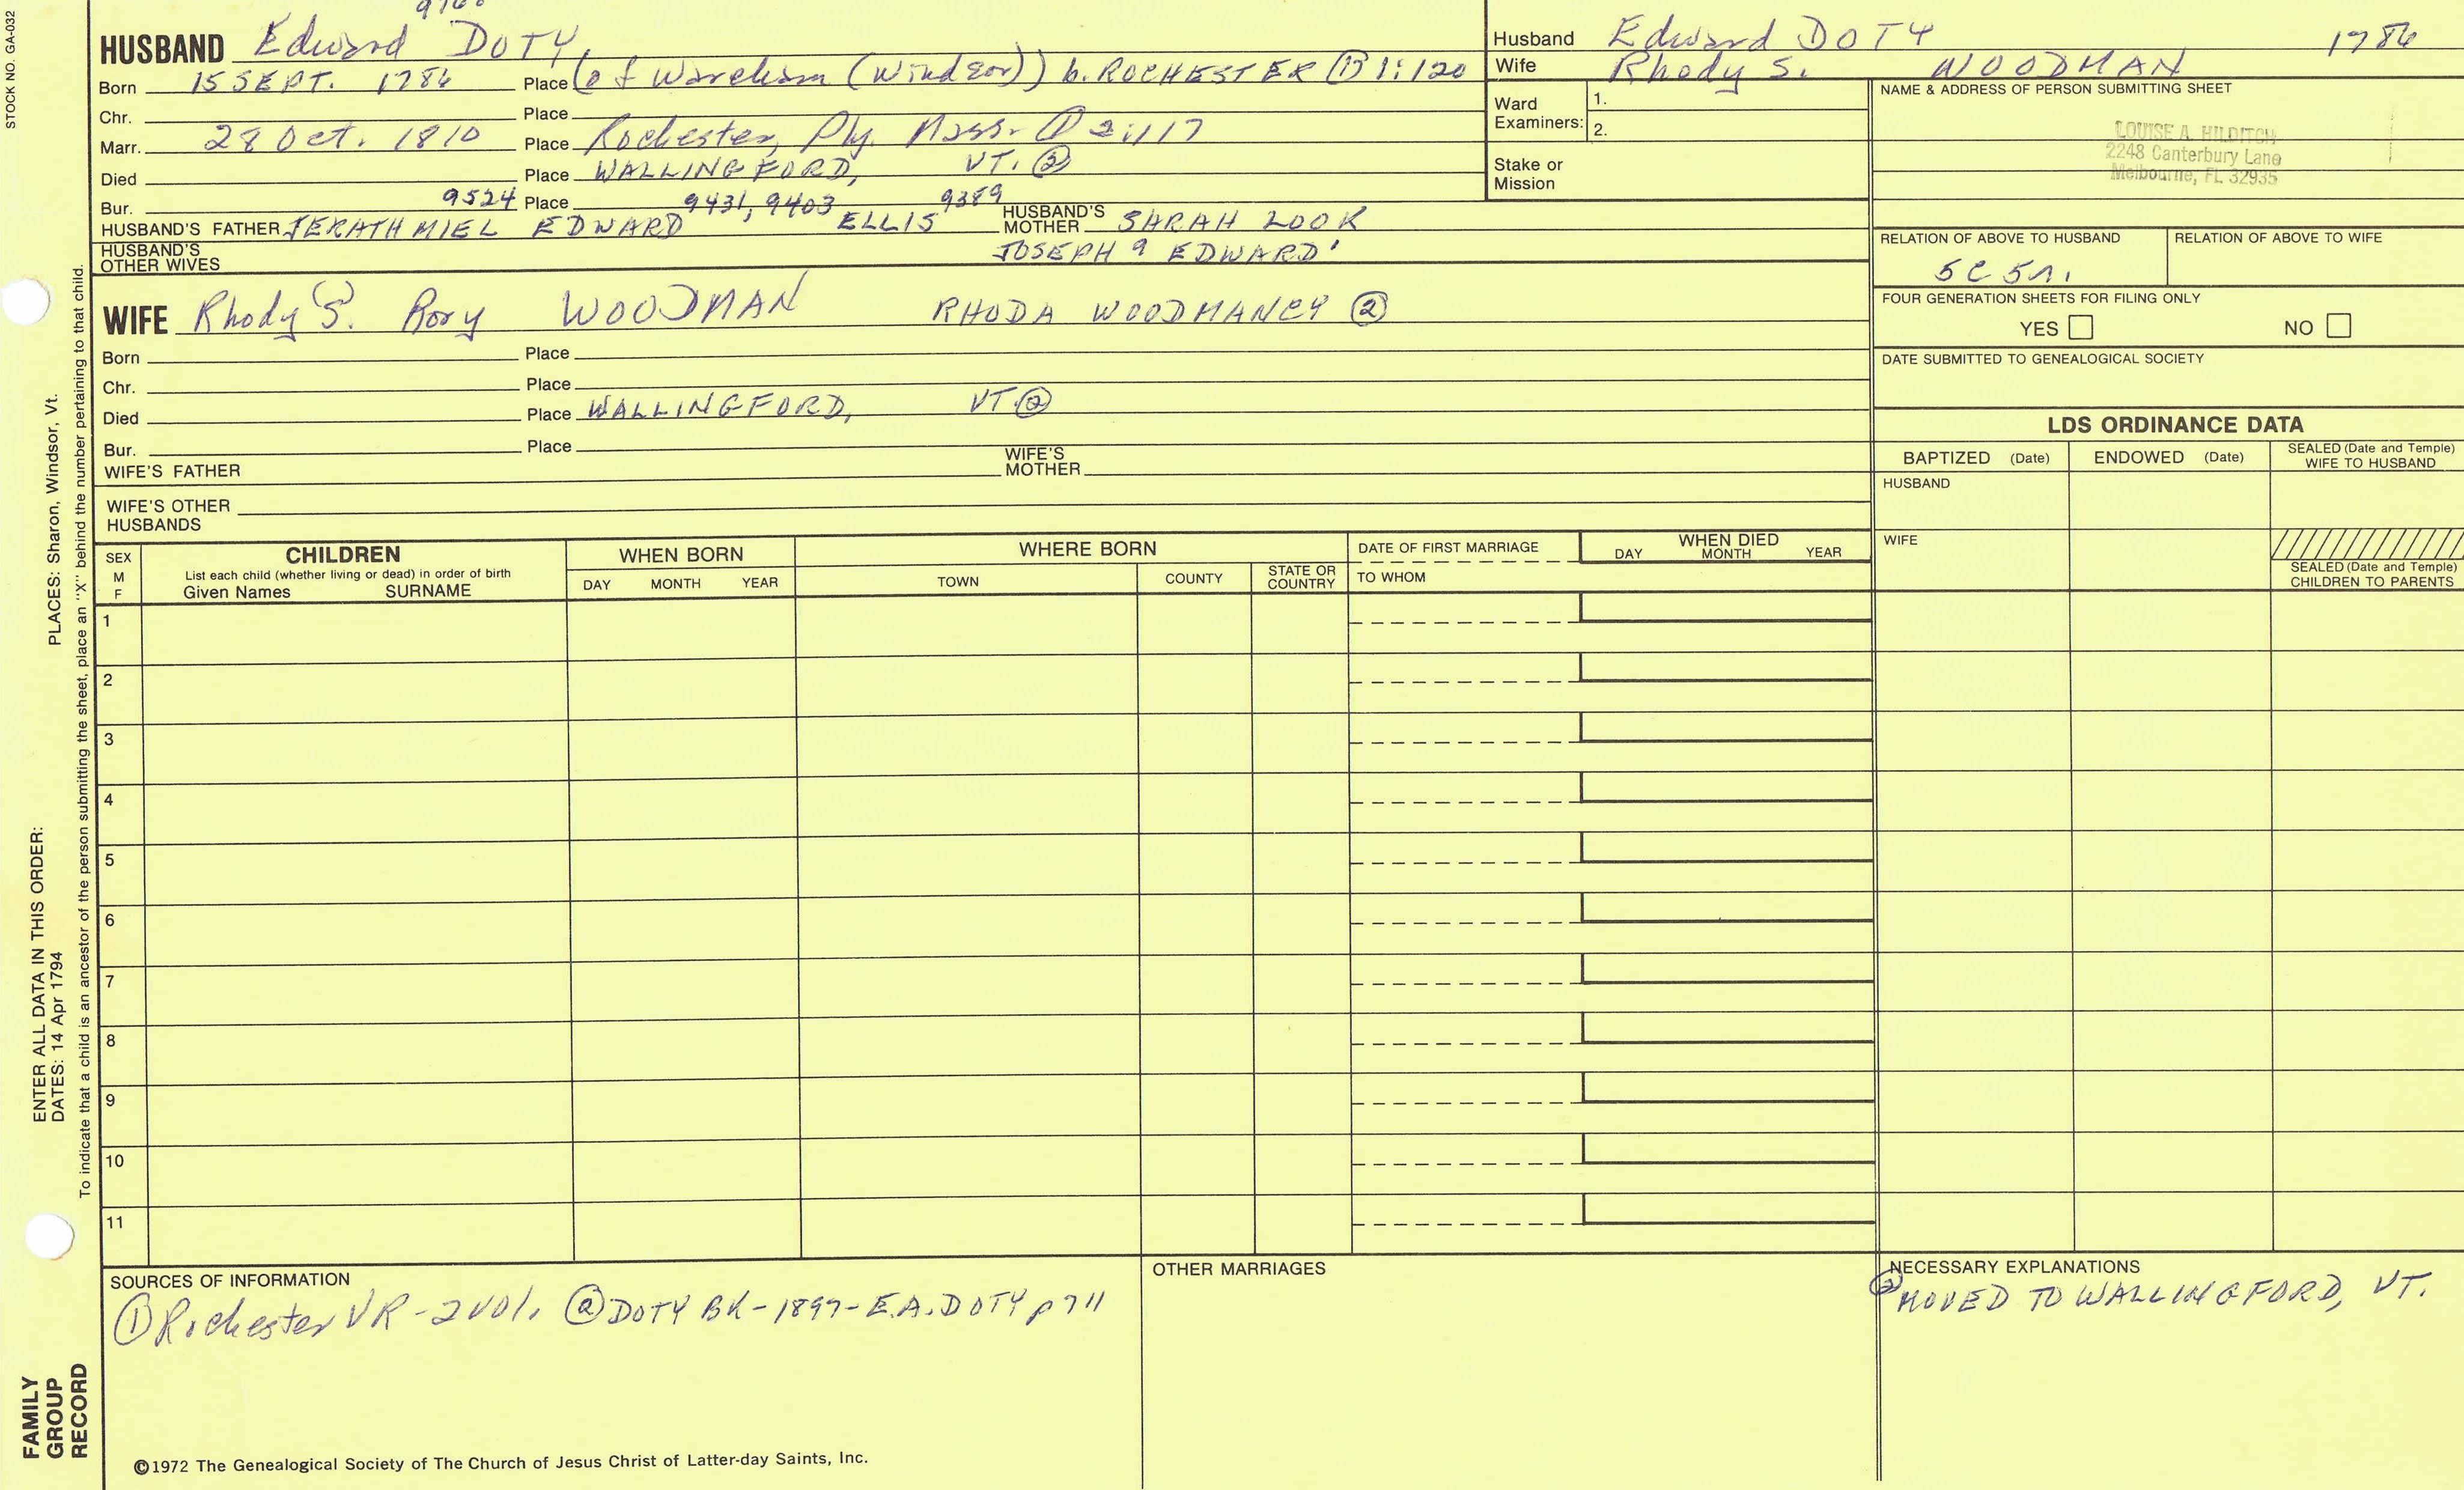 STOCK NO. GA-032
HUSBAND Edward DOTY
Born 15 SEPT. 1786 Place (of Wareham (Windsor)) b. ROCHESTER ① 1:120
Chr. Place
Marr. 28 Oct. 1810 Place Rochester, Ply. Mass. ① 2:117
Died Place WALLINGFORD, VT. ②
Bur. Place
9524 9431, 9403 9389
HUSBAND'S FATHER JERATHMIEL EDWARD ELLIS HUSBAND'S MOTHER SARAH LOOK
HUSBAND'S OTHER WIVES JOSEPH EDWARD'
WIFE Rhody S. WOODMAN RHODA WOODMANCY ②
Born Place
Chr. Place
Died Place WALLINGFORD, VT. ②
Bur. Place
WIFE'S FATHER WIFE'S MOTHER
WIFE'S OTHER HUSBANDS
Husband Edward DOTY 1786
Wife Rhody S. WOODMAN
Ward Examiners: 1.
2.
Stake or Mission
NAME & ADDRESS OF PERSON SUBMITTING SHEET
LOUISE A. HILDITCH
2248 Canterbury Lane
Melbourne, FL 32935
RELATION OF ABOVE TO HUSBAND RELATION OF ABOVE TO WIFE
5C 5r.
FOUR GENERATION SHEETS FOR FILING ONLY
YES NO
DATE SUBMITTED TO GENEALOGICAL SOCIETY
LDS ORDINANCE DATA
BAPTIZED (Date) ENDOWED (Date) SEALED (Date and Temple) WIFE TO HUSBAND
HUSBAND
WIFE
SEALED (Date and Temple) CHILDREN TO PARENTS
SEX M F
CHILDREN
List each child (whether living or dead) in order of birth
Given Names SURNAME
WHEN BORN
DAY MONTH YEAR
WHERE BORN
TOWN COUNTY STATE OR COUNTRY
DATE OF FIRST MARRIAGE
TO WHOM
WHEN DIED
DAY MONTH YEAR
1
2
3
4
5
6
7
8
9
10
11
SOURCES OF INFORMATION
① Rochester VR - 2 vol. ② DOTY BK - 1897 - E.A. DOTY p 711
OTHER MARRIAGES
NECESSARY EXPLANATIONS
② MOVED TO WALLINGFORD, VT.
©1972 The Genealogical Society of The Church of Jesus Christ of Latter-day Saints, Inc.
FAMILY
GROUP
RECORD
ENTER ALL DATA IN THIS ORDER:
DATES: 14 Apr 1794
PLACES: Sharon, Windsor, Vt.
To indicate that a child is an ancestor of the person submitting the sheet, place an "X" behind the number pertaining to that child.